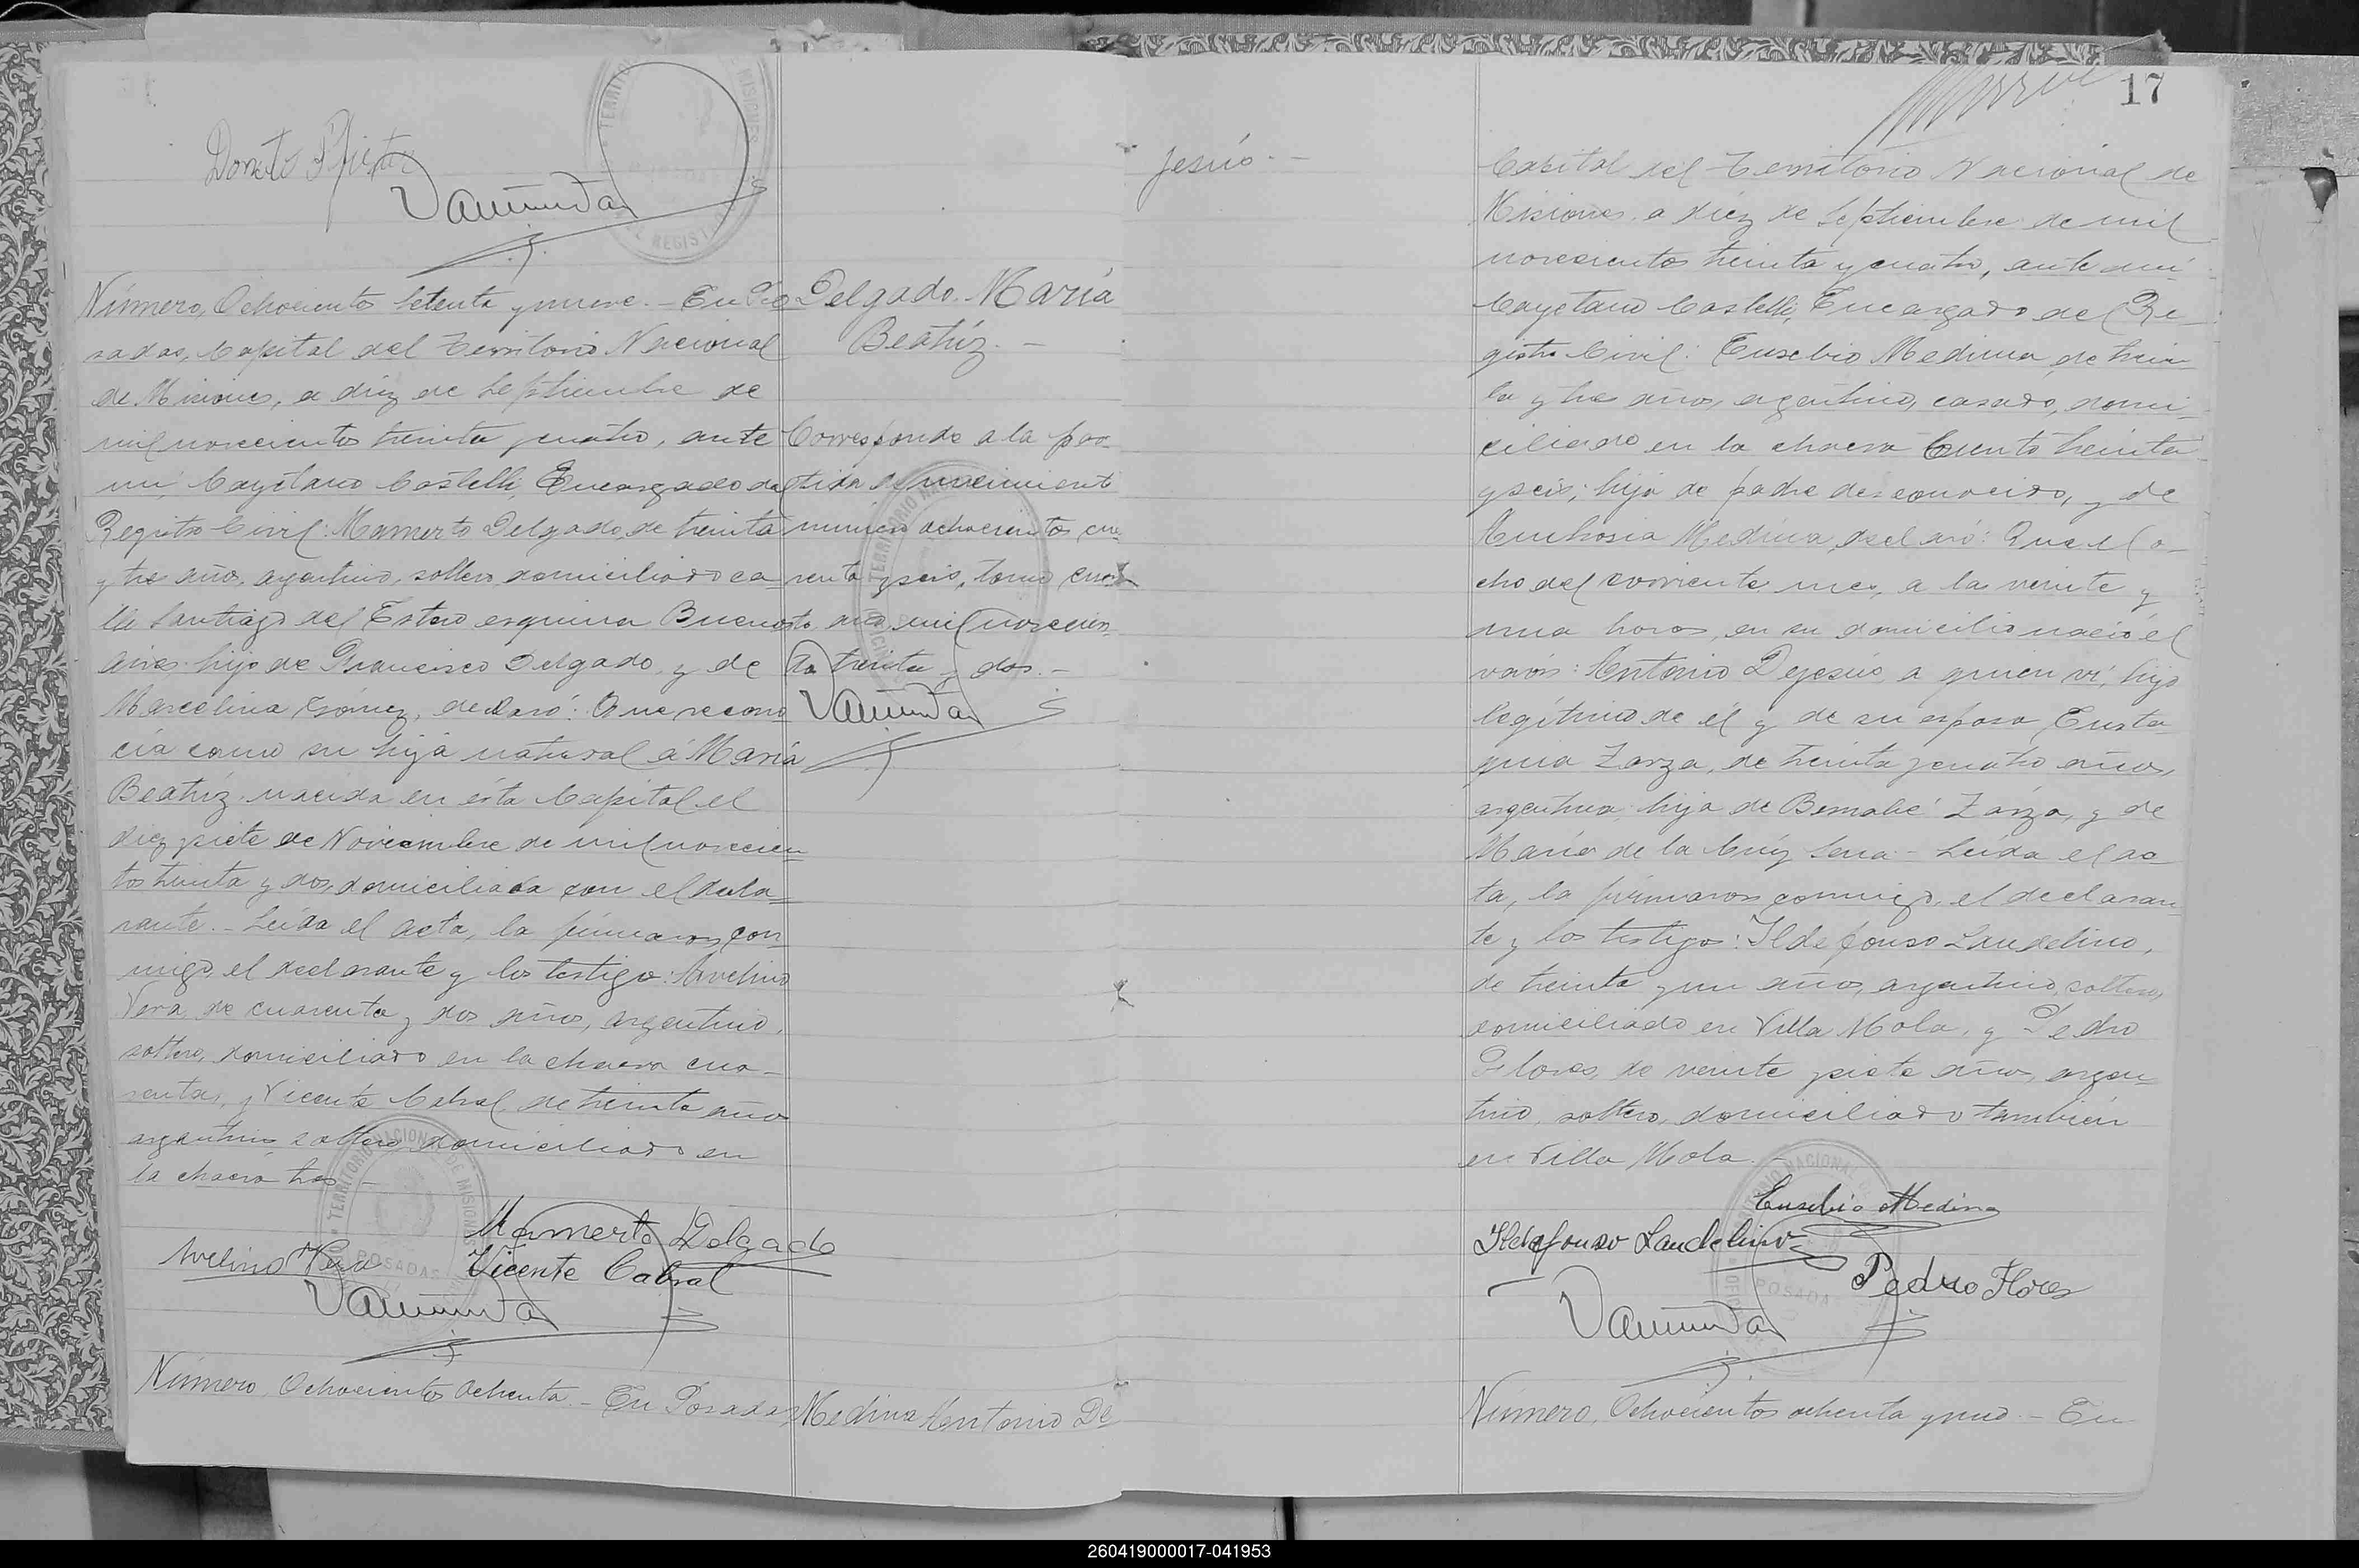 17
Donato
Número, Ochocientos Setenta y nueve. - En Po
sadas, Capital del Territorio Nacional
de Misiones, a diez de Septiembre de
mil novecientos treinta y cuatro, ante
mí, Cayetano Castelli, Encargado del
Registro Civil: Mamerto Delgado, de treinta
y tres años, argentino, soltero, domiciliado ca
lle Santiago del Estero esquina Buenos
Aires, hijo de Francisco Delgado, y de
Marcelina Gómez, declaró: Que recono
cía como su hija natural á María
Beatríz, nacida en ésta Capital el
diez y siete de Noviembre de mil novecien
tos treinta y dos, domiciliada con el decla=
rante. - Leída el acta, la firmaron con
migo, el declarante y los testigos: Avelino
Vera, de cuarenta y dos años, argentino,
soltero, domiciliado en la chacra cua-
renta, y Vicente Cabral, de treinta años
argentino soltero, domiciliado en
la chacra tres. -
Delgado. María
Beatríz. -
Corresponde a la par
tida de nacimiento
número ochocientos cua
renta y seis, tomo cuar
to, año mil novecien
tos treinta y dos. -
Mamerto Delgado
Avelino Vera
Vicente Cabral
TERRITORIO NACIONAL DE MISIONES
POSADAS
Número, Ochocientos Ochenta. - En Posadas,
Medina Antonio De
Jesús. -
Capital del Territorio Nacional de
Misiones, a diez de Septiembre de mil
novecientos treinta y cuatro, ante mí
Cayetano Castelli, Encargado del Re-
gistro Civil: Eusebio Medina, de trein
ta y tres años, argentino, casado, domi-
ciliado en la chacra Ciento treinta
y seis; hijo de padre desconocido, y de
Medina, declaró: Que el o-
cho del corriente mes, a las veinte y
una horas, en su domicilio nació el
varón: Antonio Dejesús, a quien ví, hijo
legítimo de él y de su esposa Eusta
quia Zarza, de treinta y cuatro años,
argentina, hija de Bernabé Zarza, y de
María de la Cruz Sena - Leída el ac
ta, la firmaron conmigo, el declaran
te y los testigos: Ildefonso Laudelino,
de treinta y un años, argentino, soltero,
domiciliado en Villa Mola, y Pedro
Flores, de veinte y siete años, argen
tino, soltero, domiciliado también
en Villa Mola. -
Eusebio Medina
Ildefonso Laudelino
Pedro Flores
Número, Ochocientos ochenta y uno. - En
260419000017-041953